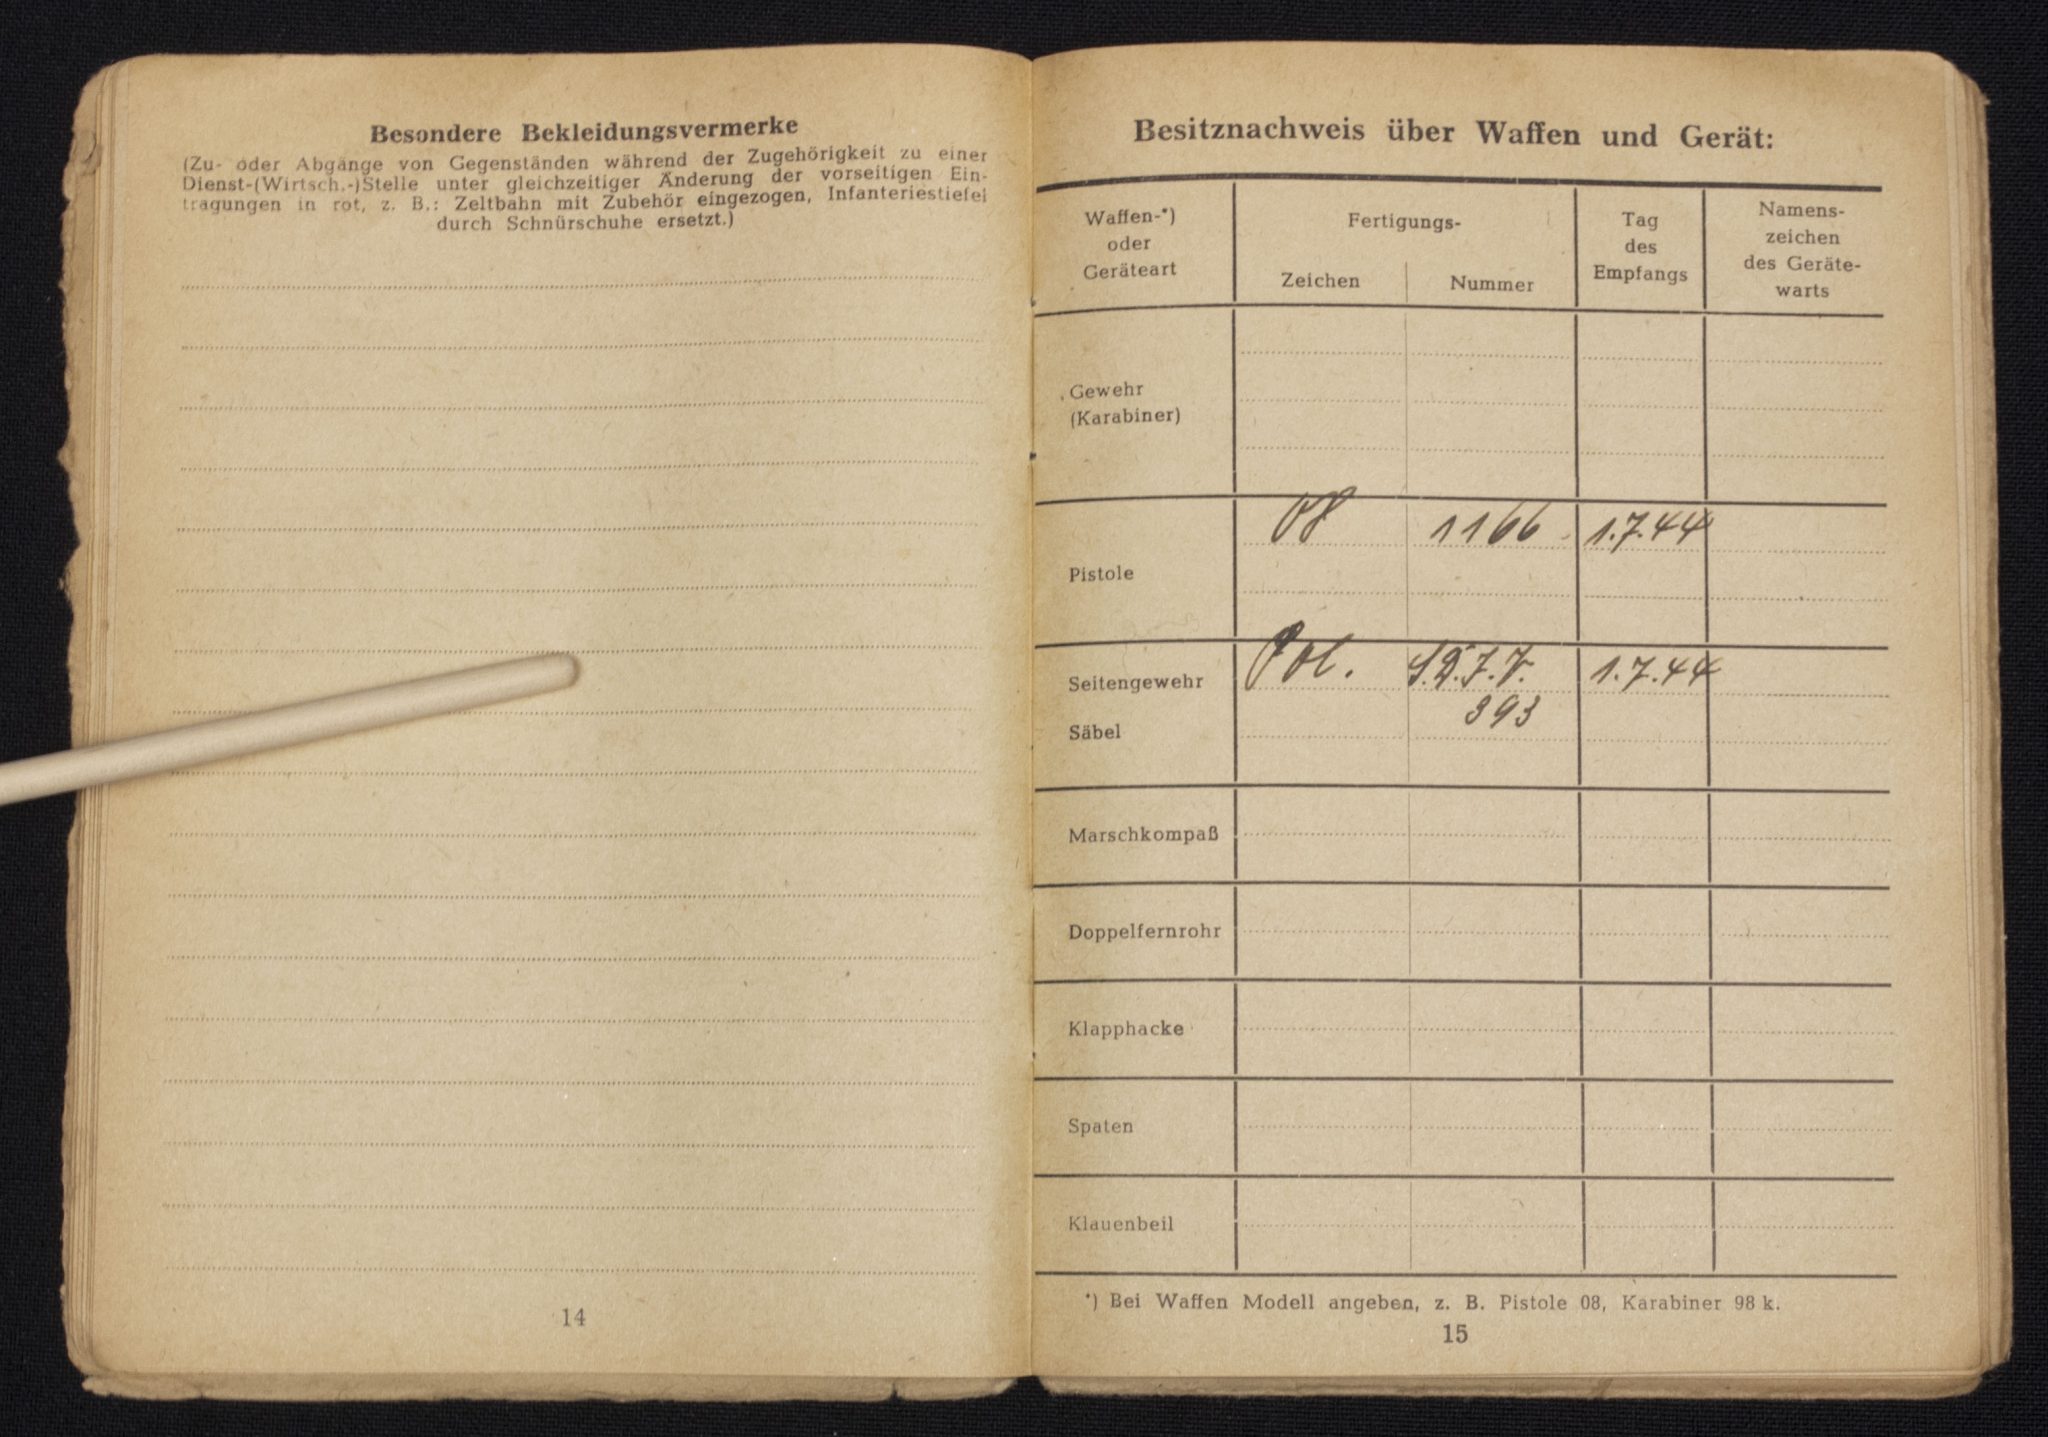 Besondere Bekleidungsvermerke
(Zu- oder Abgänge von Gegenständen während der Zugehörigkeit zu einer
Dienst-(Wirtsch.-)Stelle unter gleichzeitiger Änderung der vorseitigen Ein-
tragungen in rot, z. B.: Zeltbahn mit Zubehör eingezogen, Infanteriestiefel
durch Schnürschuhe ersetzt.)
14
Besitznachweis über Waffen und Gerät:
Waffen-*)
oder
Geräteart
Fertigungs-
Zeichen
Nummer
Tag
des
Empfangs
Namens-
zeichen
des Geräte-
warts
Gewehr
(Karabiner)
Pistole
08
1166
1.7.44
Seitengewehr
Pol.
S.D.I.V.
1.7.44
Säbel
393
Marschkompaß
Doppelfernrohr
Klapphacke
Spaten
Klauenbeil
*) Bei Waffen Modell angeben, z. B. Pistole 08, Karabiner 98 k.
15